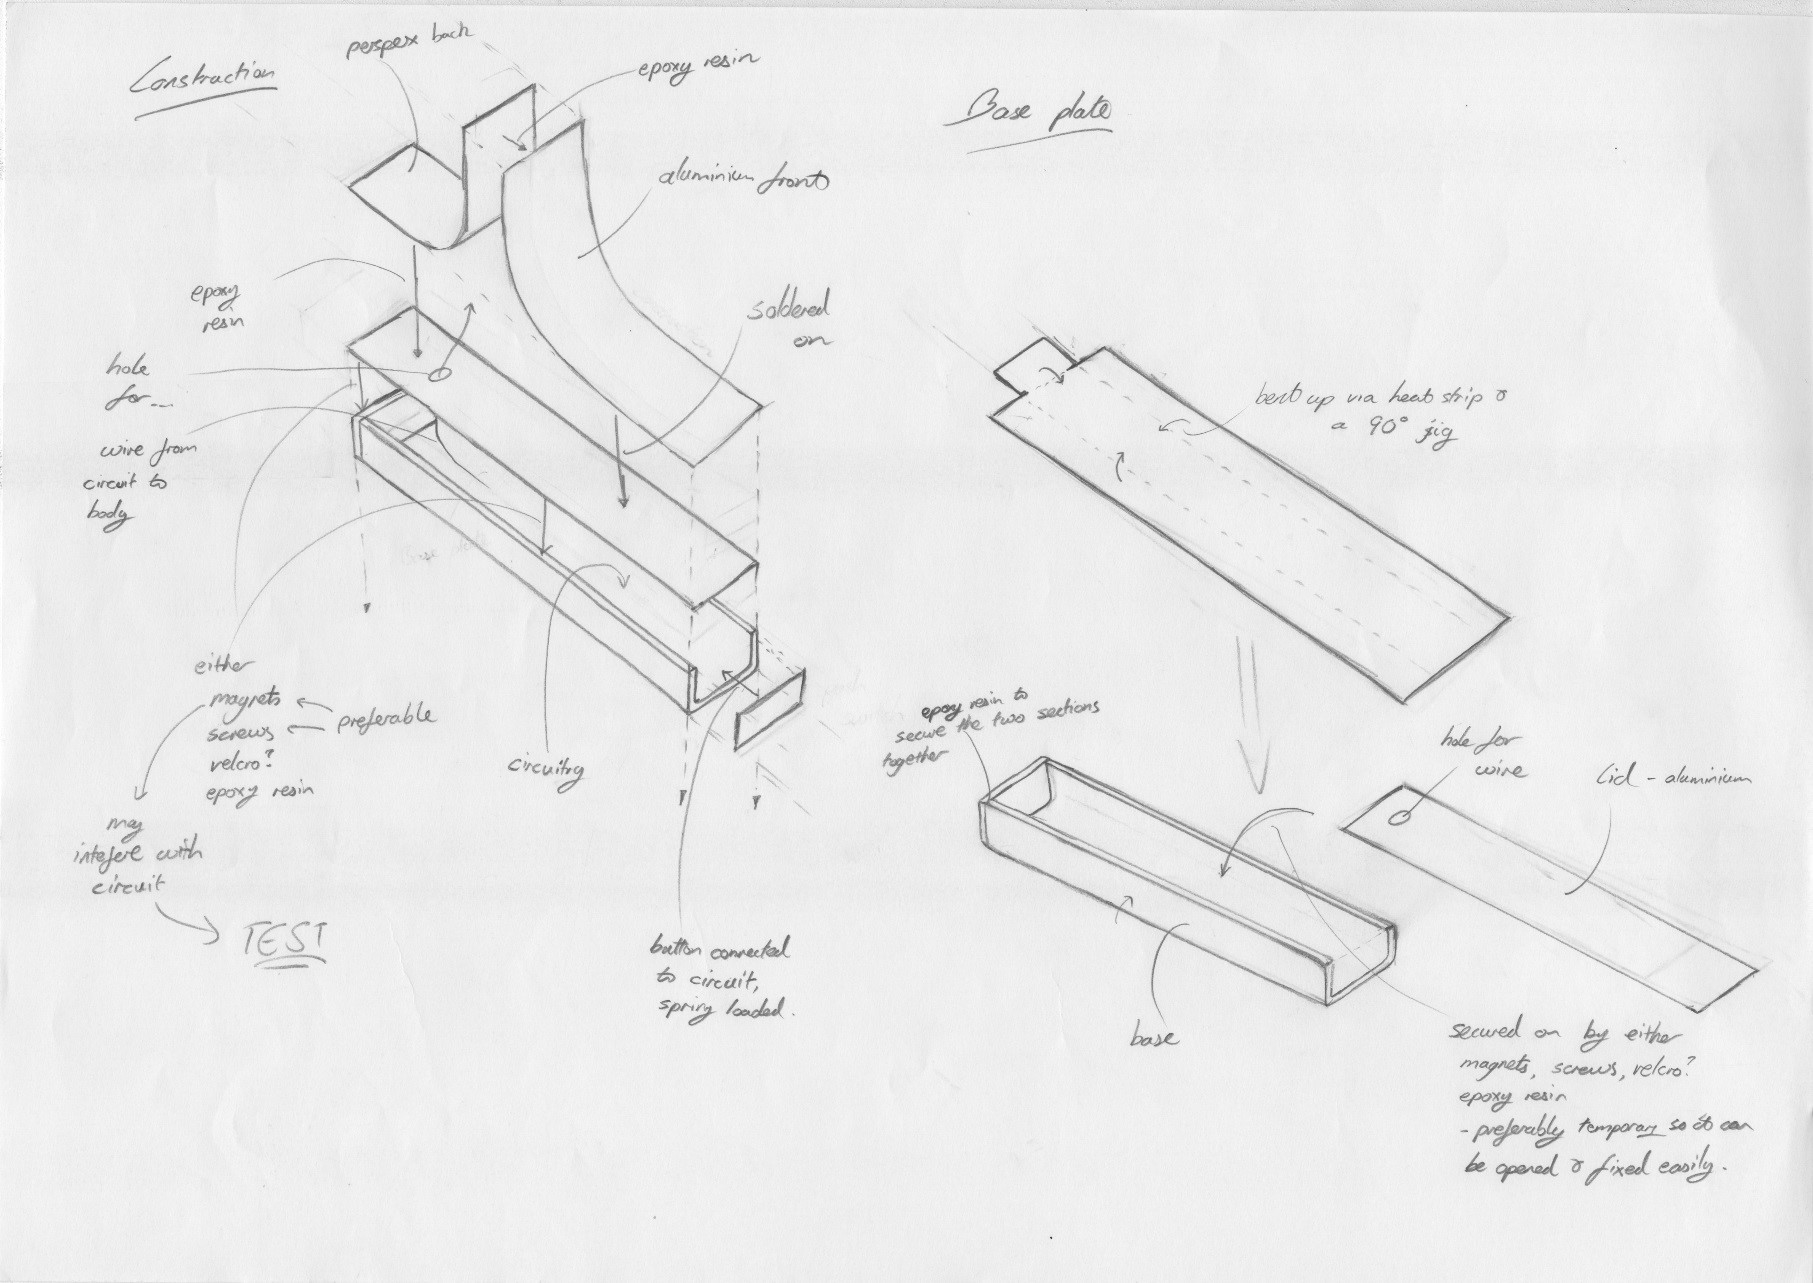 Construction
perspex back
epoxy resin
aluminium front
epoxy
resin
soldered
on
hole
for...
wire from
circuit to
body
either
magnets
screws
velcro?
epoxy resin
preferable
may
intefere with
circuit
TEST
circuitry
button connected
to circuit,
spring loaded.
Base plate
bent up via heat strip &
a 90° jig
epoxy resin to
secure the two sections
together
hole for
wire
Lid - aluminium
base
secured on by either
magnets, screws, velcro?
epoxy resin
- preferably temporary so it can
be opened & fixed easily.